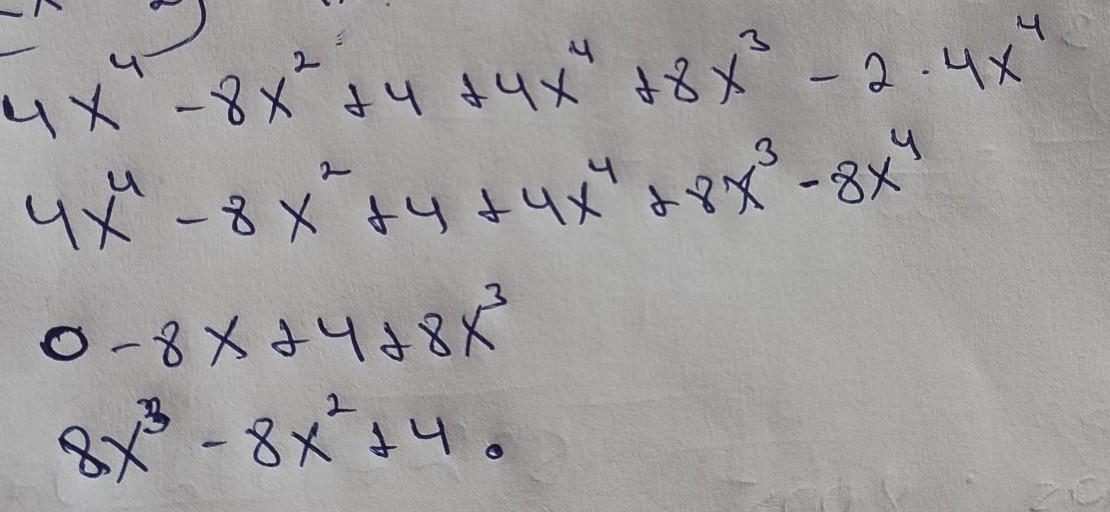 4x⁴ - 8x² + 4 + 4x⁴ + 8x³ - 2 · 4x⁴
4x⁴ - 8x² + 4 + 4x⁴ + 8x³ - 8x⁴
0 - 8x + 4 + 8x³
8x³ - 8x² + 4 .